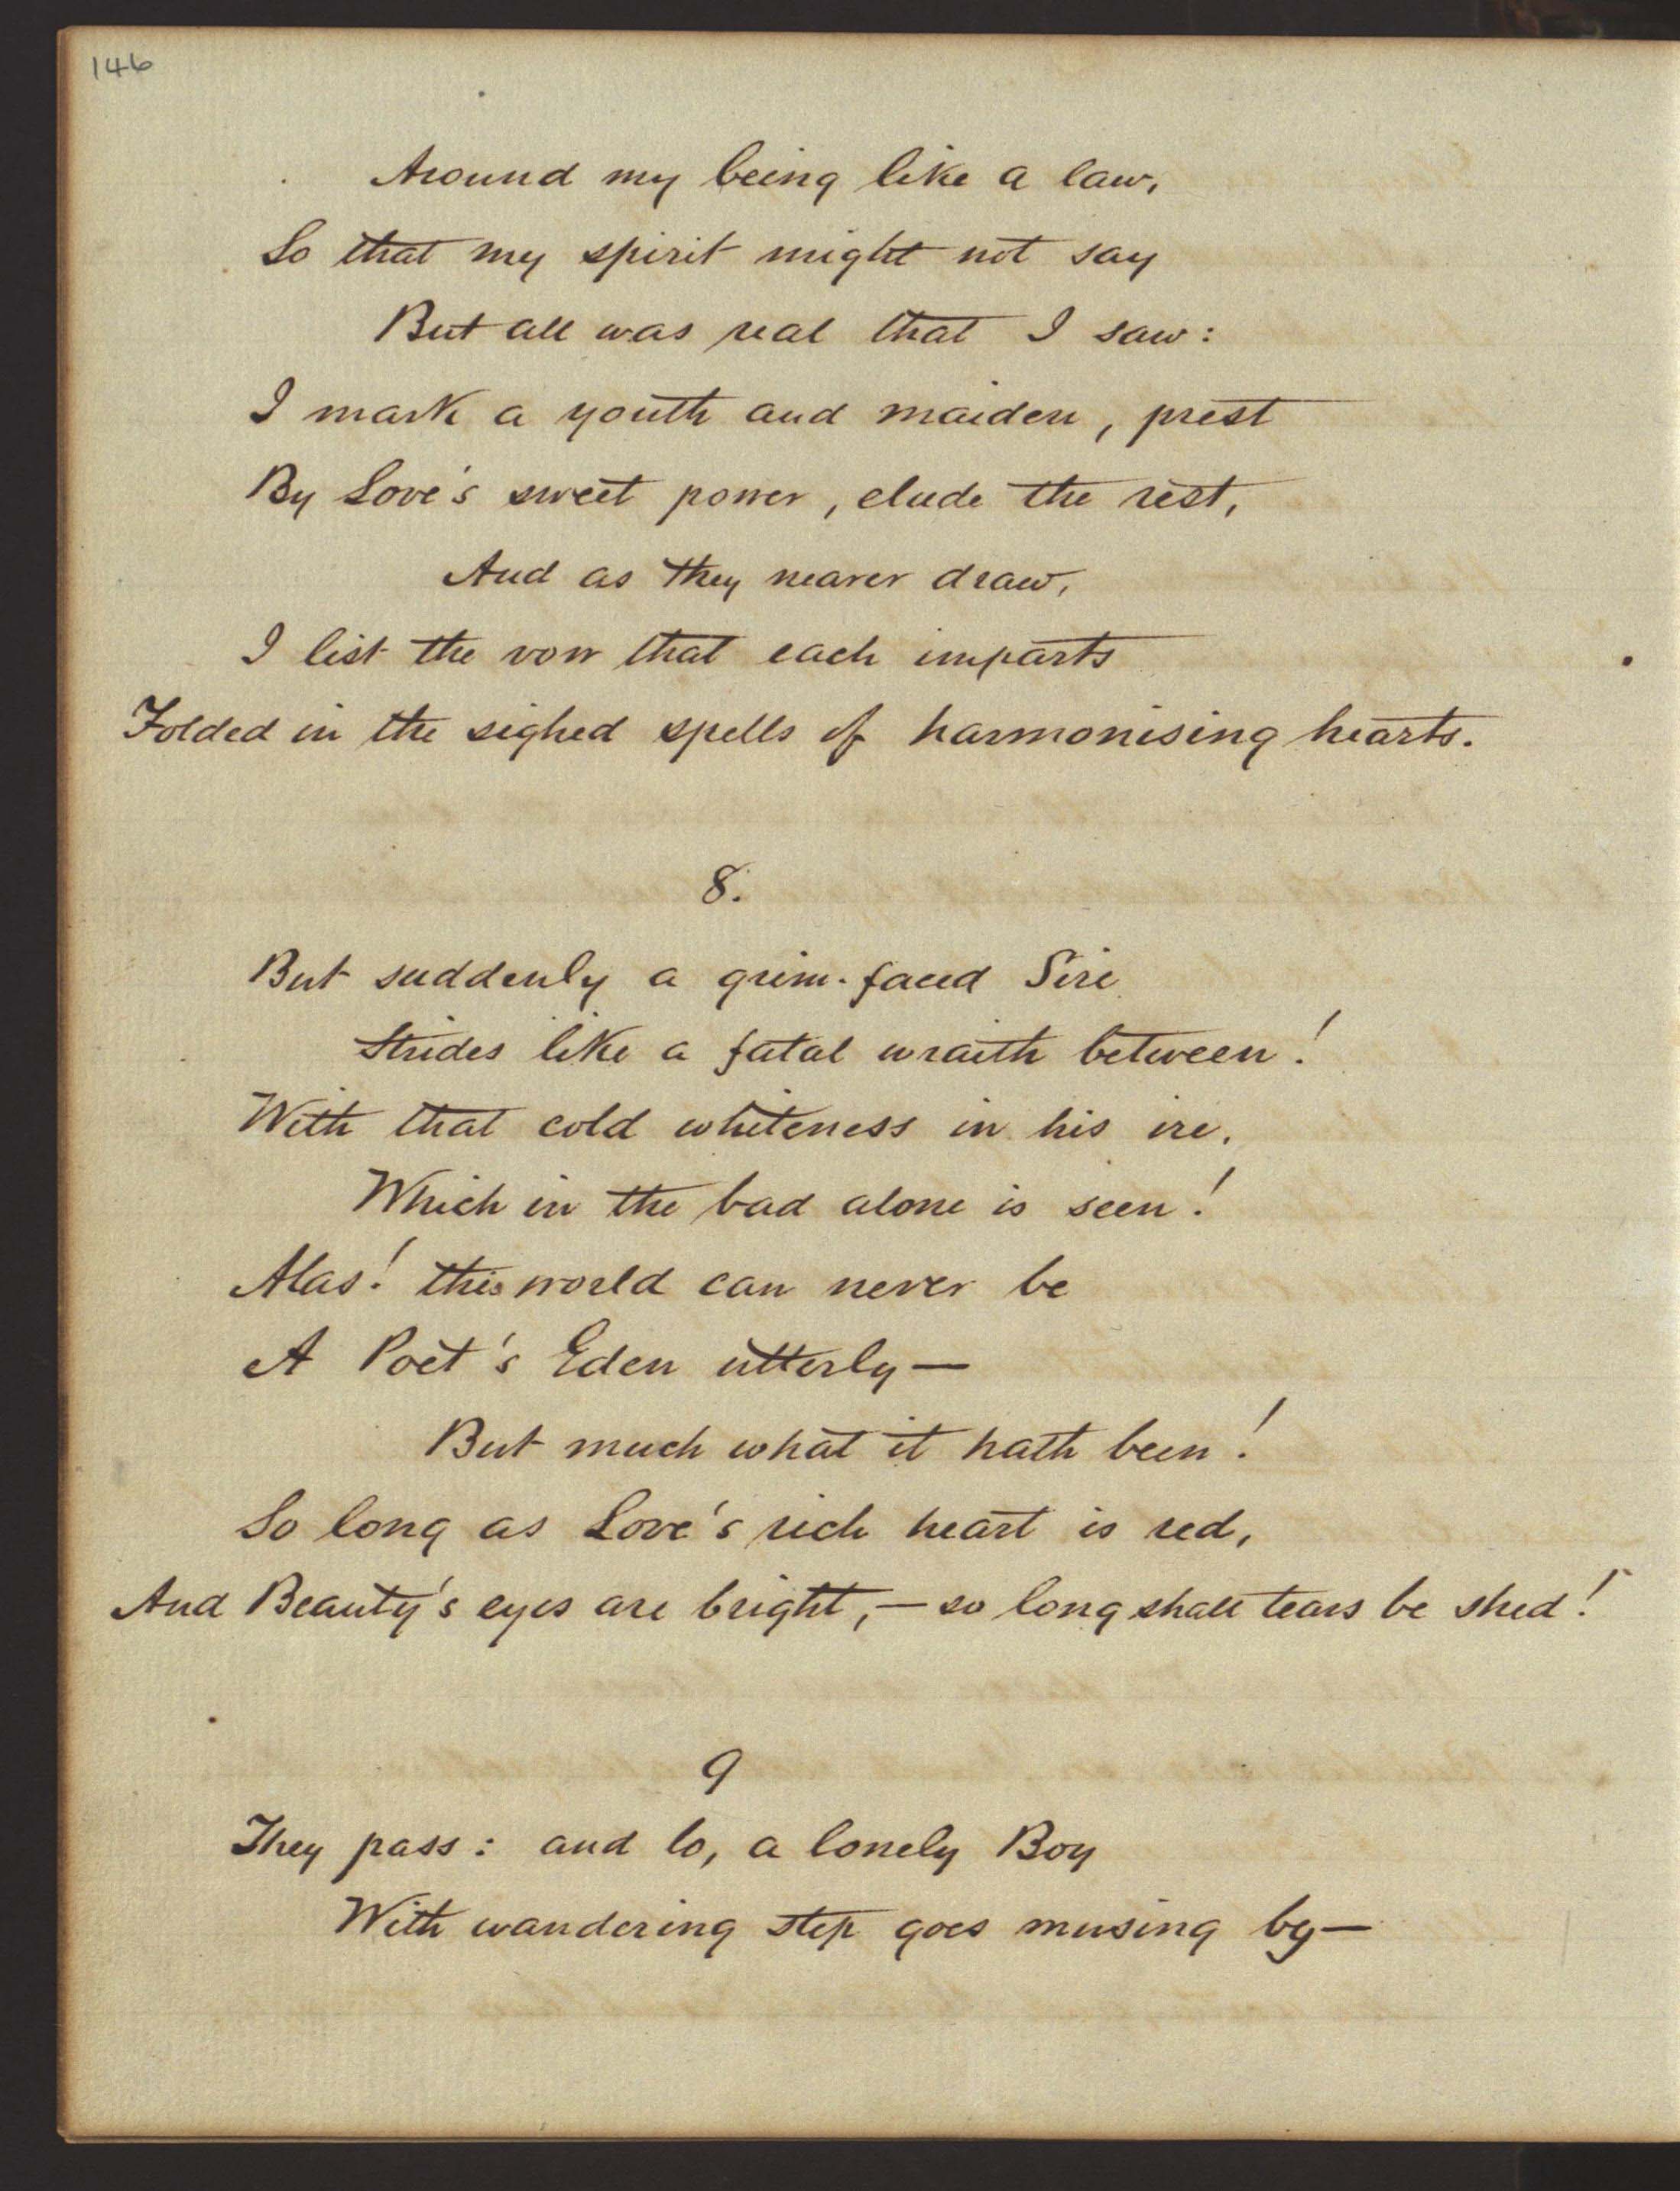 146
Around my being like a law,
So that my spirit might not say
But all was real that I saw:
I mark a youth and maiden, prest
By Love's sweet power, elude the rest,
And as they nearer draw,
I list the vow that each imparts
Folded in the sighed spells of harmonising hearts.
8.
But suddenly a grim-faced Sire
Strides like a fatal wraith between!
With that cold whiteness in his ire,
Which in the bad alone is seen!
Alas! this world can never be
A Poet's Eden utterly—
But much what it hath been!
So long as Love's rich heart is red,
And Beauty's eyes are bright,—so long shall tears be shed!
9
They pass: and lo, a lonely Boy
With wandering step goes musing by—